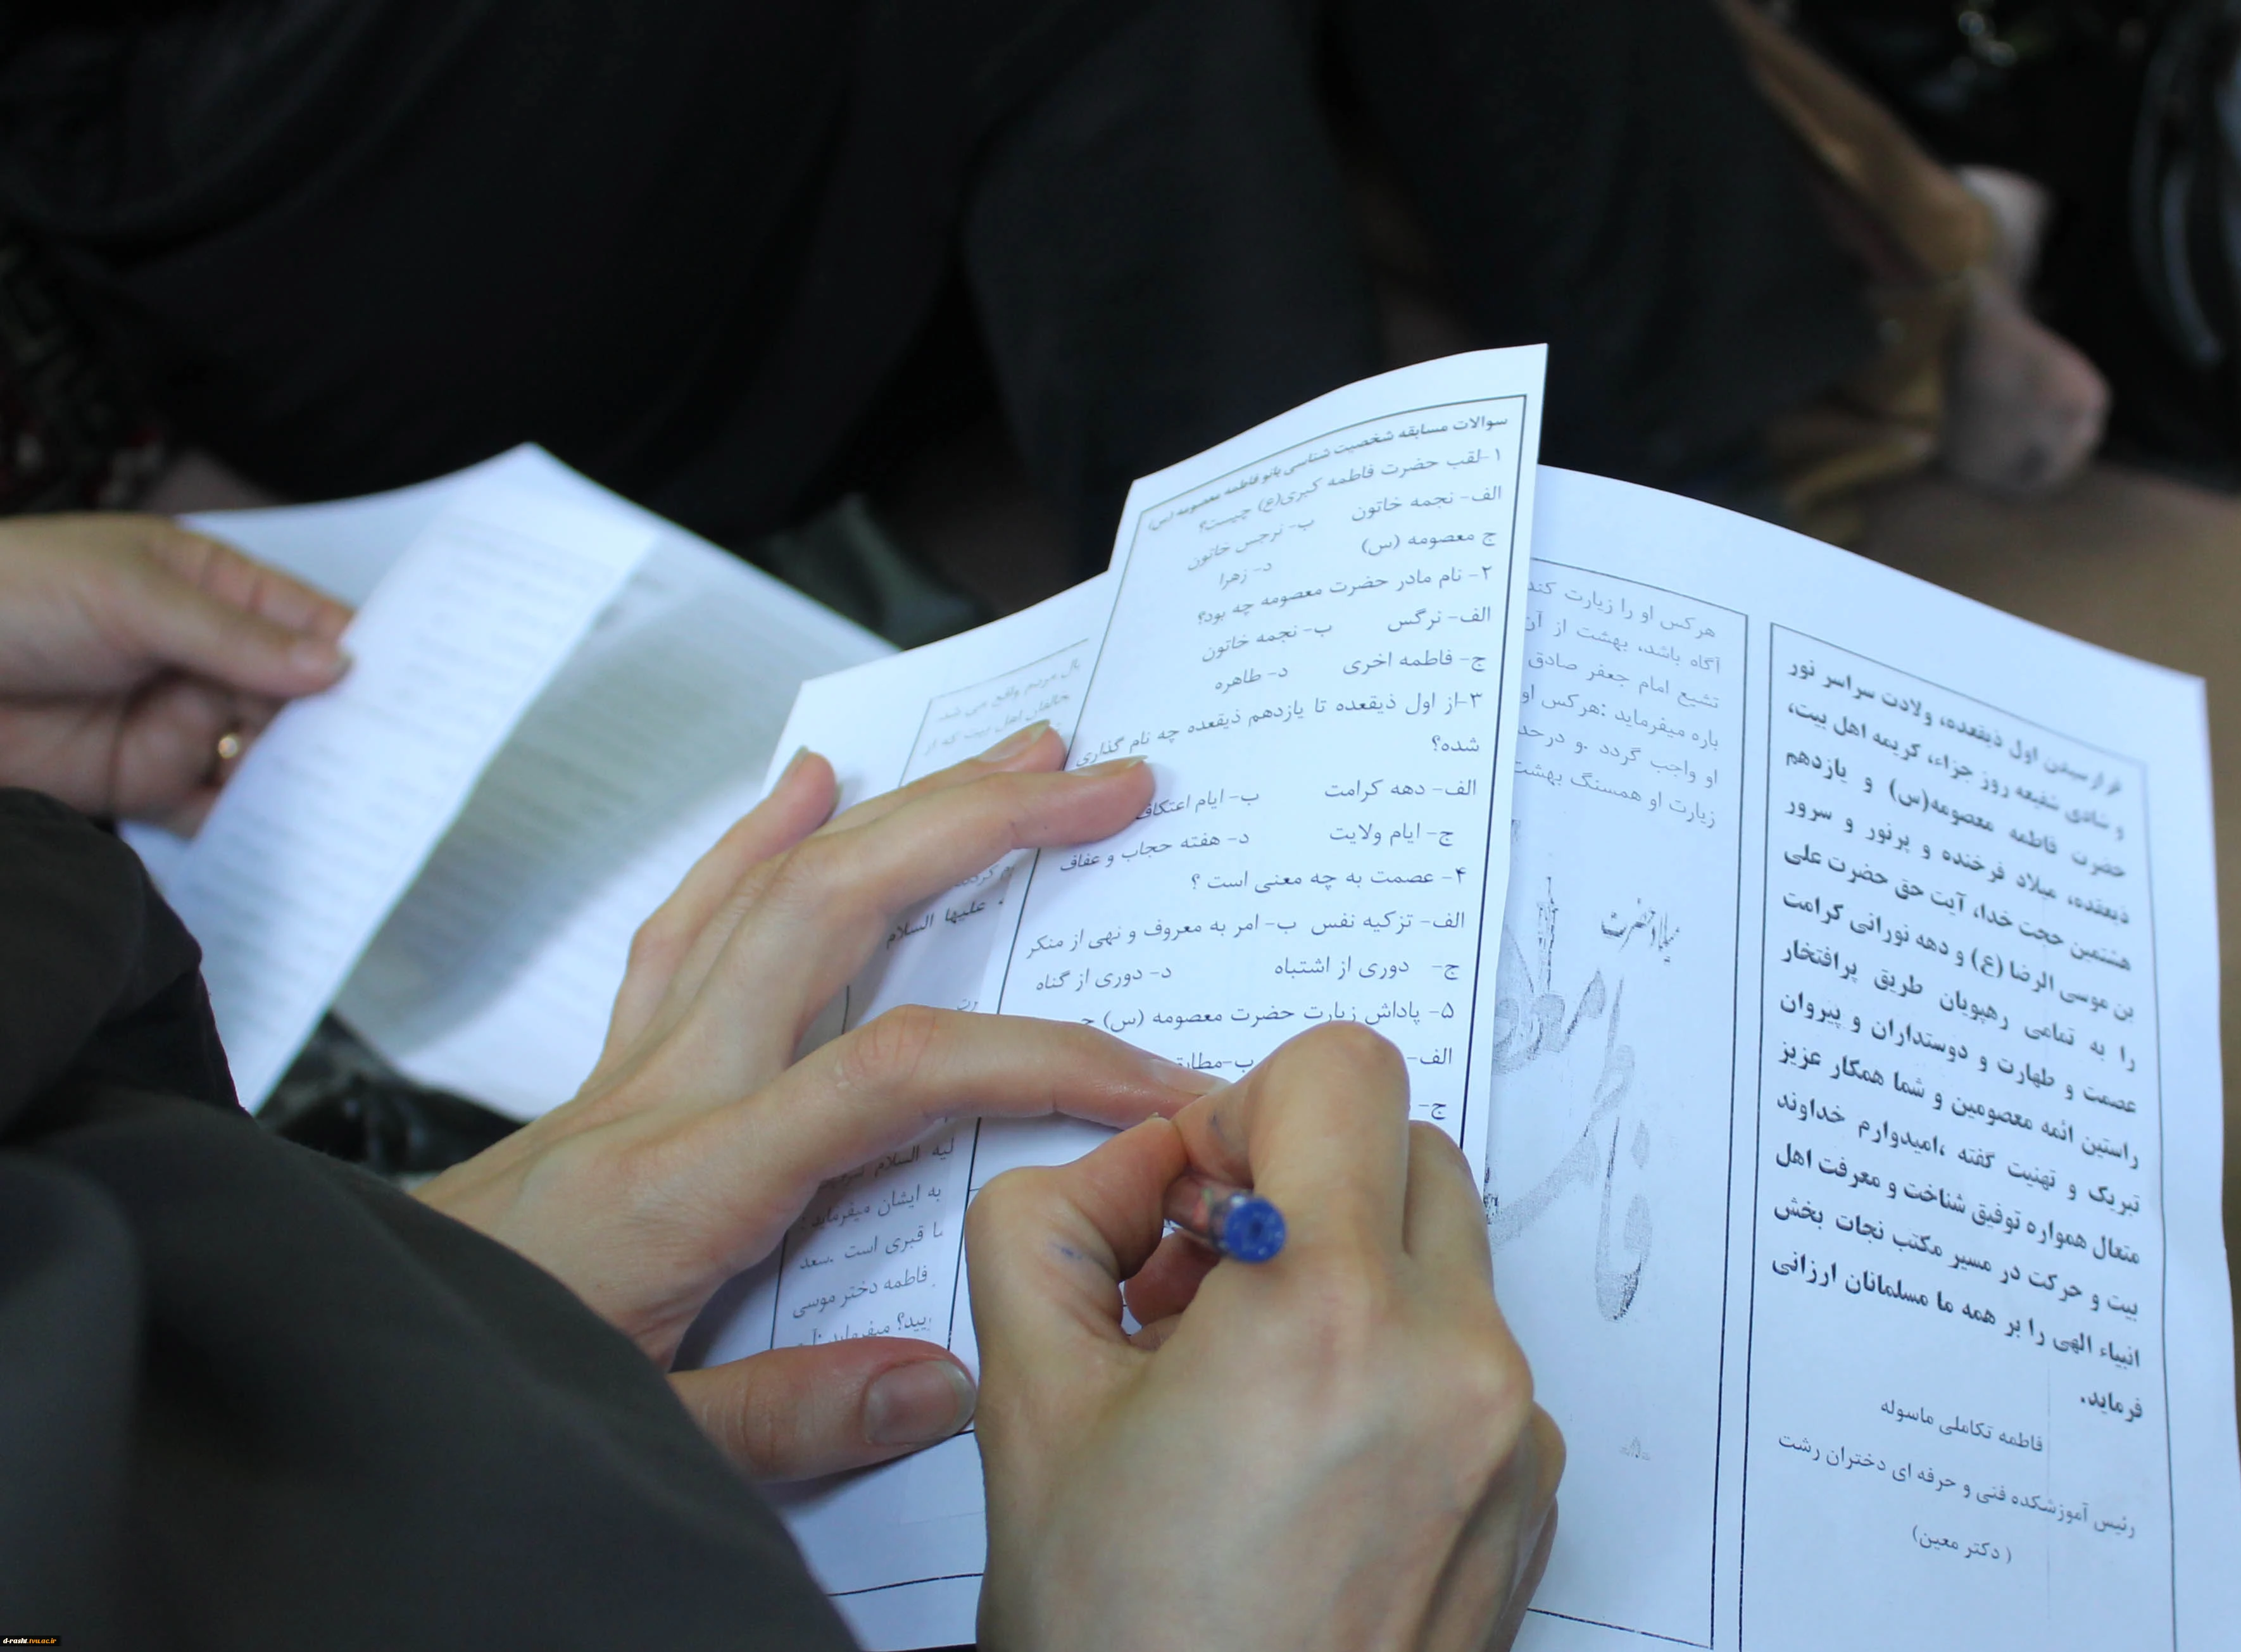 سوالات مسابقه شخصیت شناسی بانو فاطمه معصومه (س)
۱-لقب حضرت فاطمه کبری(ع) چیست؟
الف- نجمه خاتون ب- نرجس خاتون
ج معصومه (س) د- زهرا
۲- نام مادر حضرت معصومه چه بود؟
الف- نرگس ب- نجمه خاتون
ج- فاطمه اخری د- طاهره
۳-از اول ذیقعده تا یازدهم ذیقعده چه نام گذاری
شده؟
الف- دهه کرامت ب- ایام اعتکاف
ج- ایام ولایت د- هفته حجاب و عفاف
۴- عصمت به چه معنی است ؟
الف- تزکیه نفس ب- امر به معروف و نهی از منکر
ج- دوری از اشتباه د- دوری از گناه
۵- پاداش زیارت حضرت معصومه (س)
الف- ب-
ج-
هرکس او را زیارت کند
آگاه باشد، بهشت از آن
تشیع امام جعفر صادق
باره میفرماید :هرکس او
او واجب گردد .و درحد
زیارت او همسنگ بهشت
میلاد حضرت
فاطمه معصومه
فرارسیدن اول ذیقعده، ولادت سراسر نور
و شادی شفیعه روز جزاء، کریمه اهل بیت،
حضرت فاطمه معصومه(س) و یازدهم
ذیعقده، میلاد فرخنده و پرنور و سرور
هشتمین حجت خدا، آیت حق حضرت علی
بن موسی الرضا (ع) و دهه نورانی کرامت
را به تمامی رهپویان طریق پرافتخار
عصمت و طهارت و دوستداران و پیروان
راستین ائمه معصومین و شما همکار عزیز
تبریک و تهنیت گفته ،امیدوارم خداوند
متعال همواره توفیق شناخت و معرفت اهل
بیت و حرکت در مسیر مکتب نجات بخش
انبیاء الهی را بر همه ما مسلمانان ارزانی
فرماید.
فاطمه تکاملی ماسوله
رئیس آموزشکده فنی و حرفه ای دختران رشت
( دکتر معین)
بال مردم واقع می شد.
مخالفان اهل بیت که از
علیها السلام
لیه السلام
به ایشان میفرماید :
ما قبری است .سعد
فاطمه دختر موسی
میفرماید
d-rasht.tvu.ac.ir